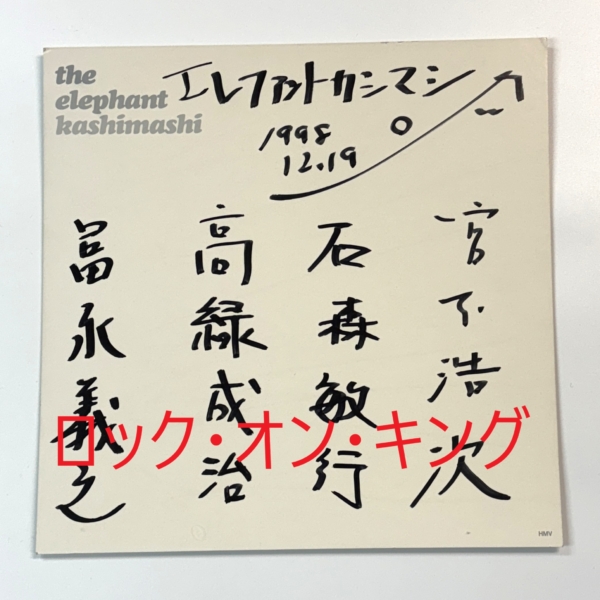 the
elephant
kashimashi
エレファントカシマシ
1998
12.19
宮下浩次
石森敏行
高緑成治
冨永義之
ロック・オン・キング
HMV